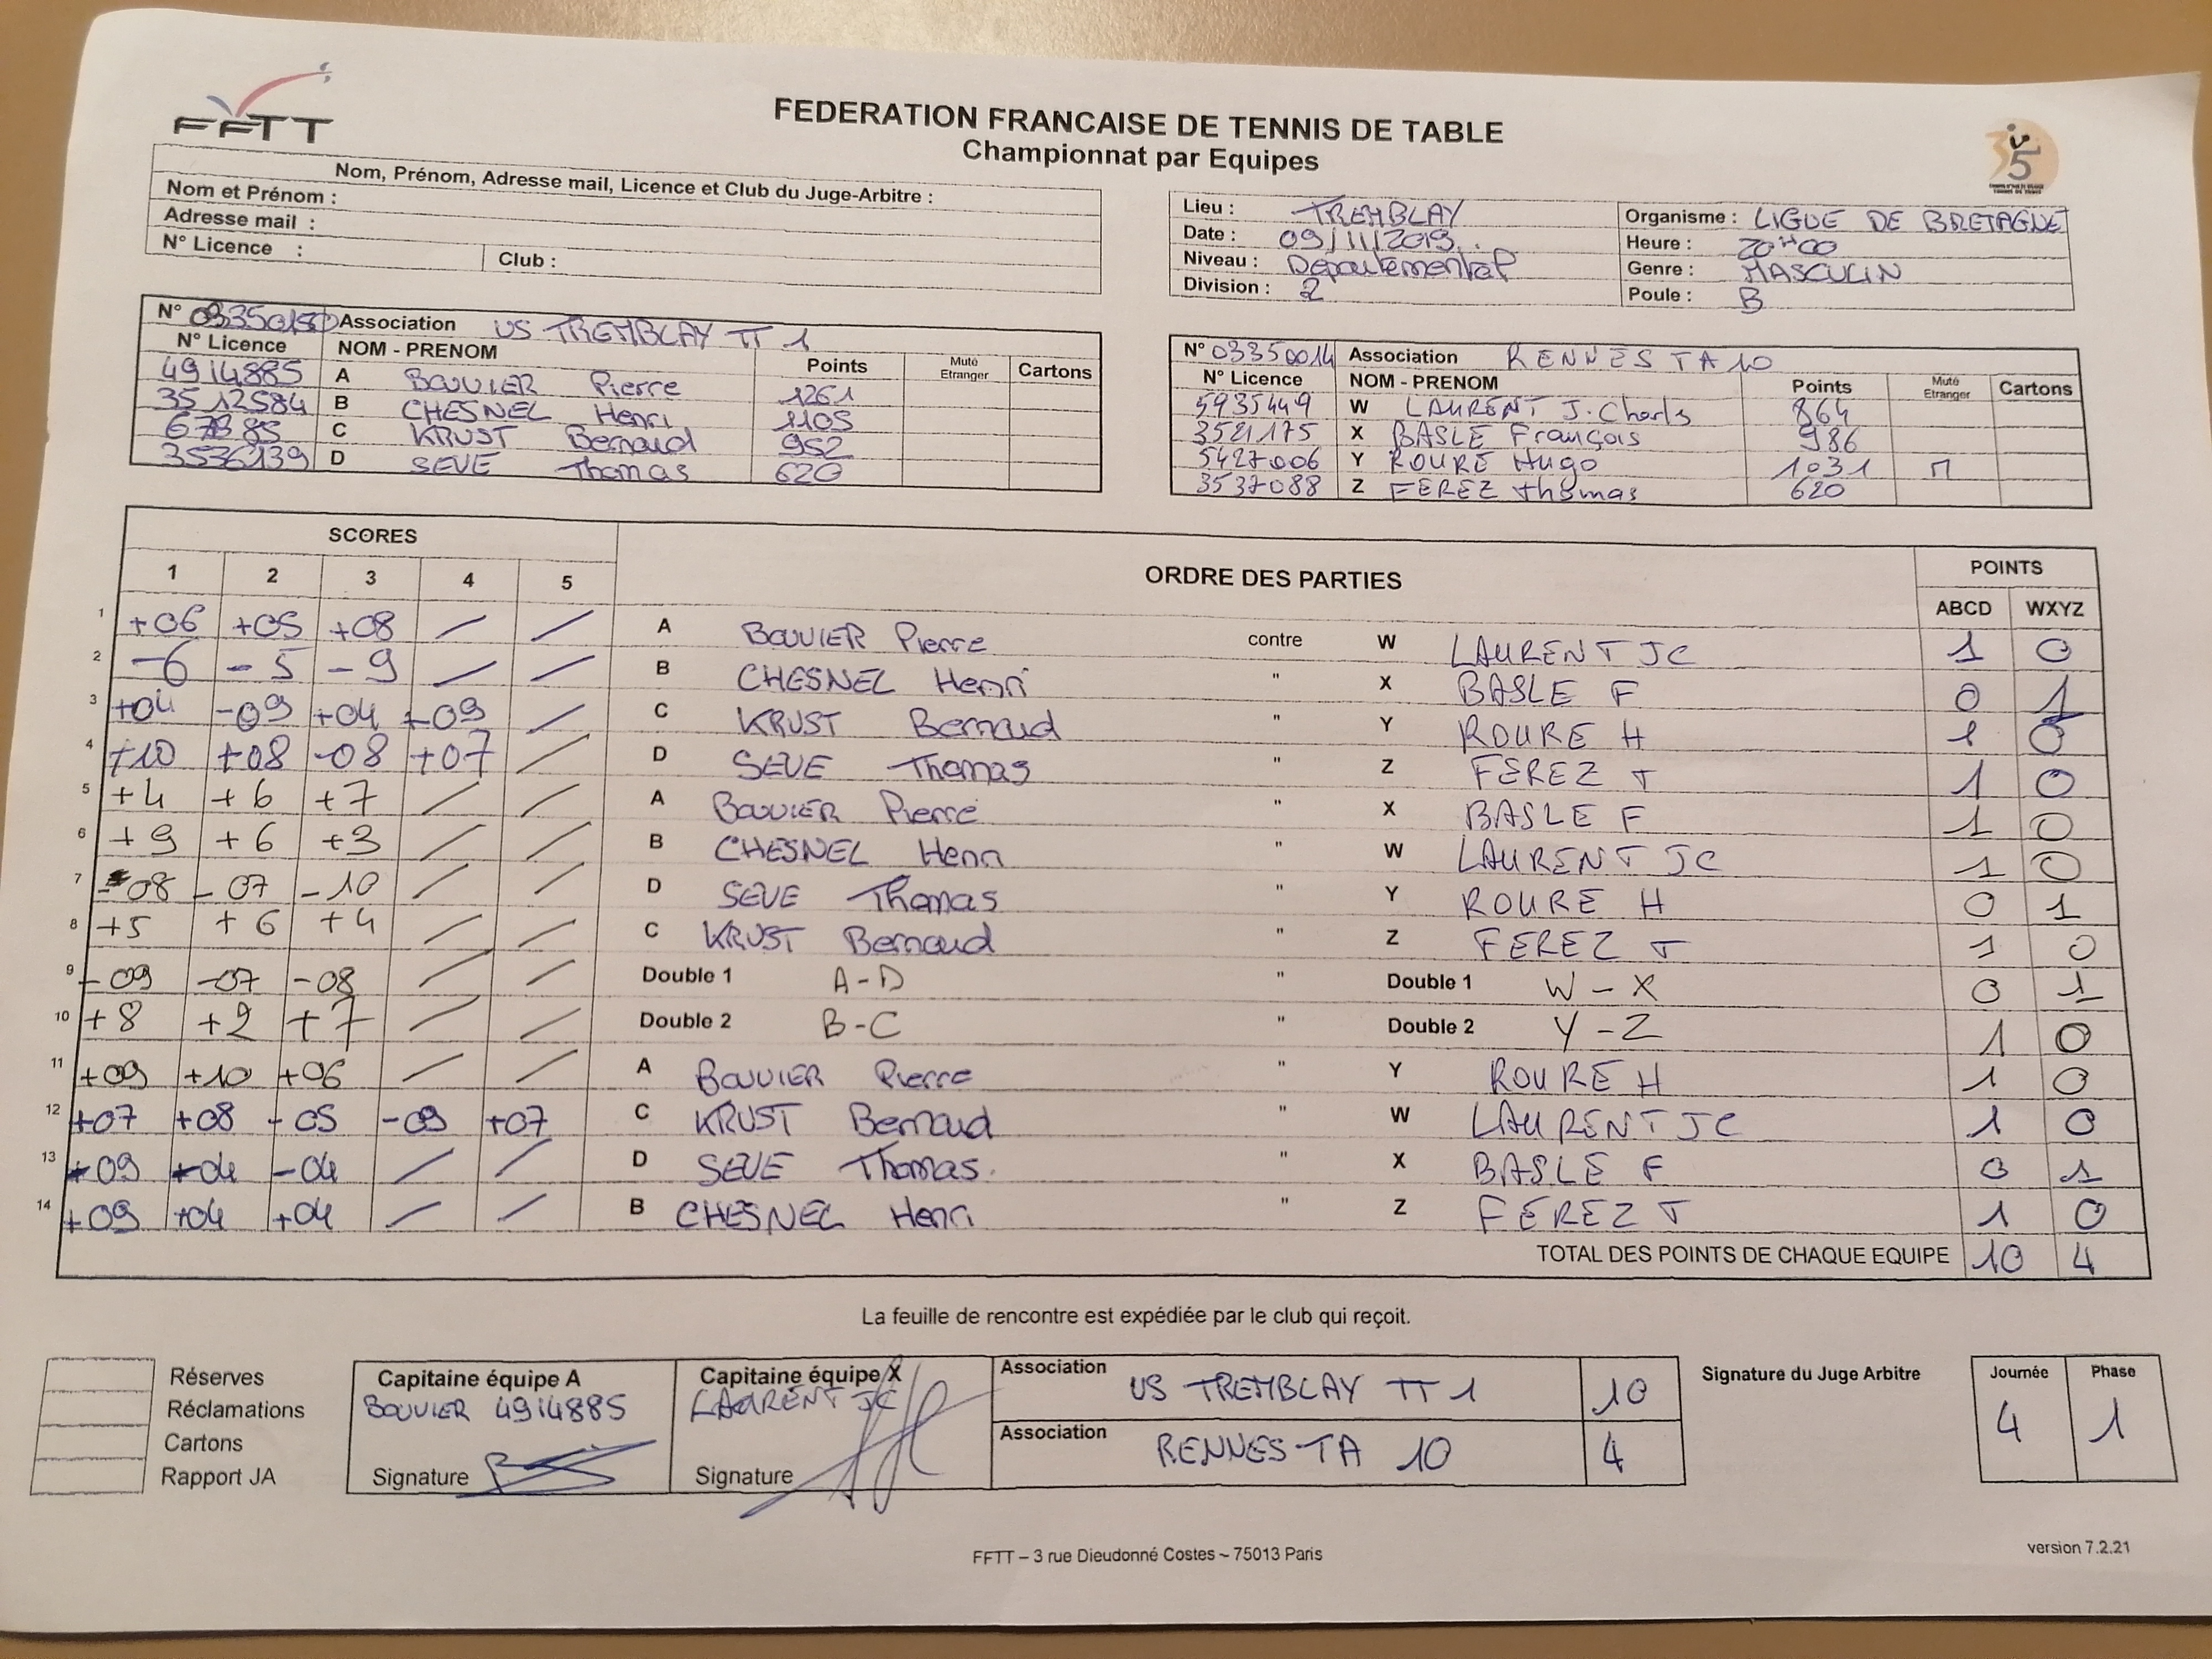 FFTT
FEDERATION FRANCAISE DE TENNIS DE TABLE
Championnat par Equipes
35
Nom, Prénom, Adresse mail, Licence et Club du Juge-Arbitre :
Nom et Prénom :
Adresse mail :
N° Licence : Club :
Lieu : TREMBLAY Organisme : LIGUE DE BRETAGNE
Date : 09/11/2019 Heure : 20H00
Niveau : Départemental Genre : MASCULIN
Division : 2 Poule : B
N° Association US TREMBLAY TT 1
N° Licence NOM - PRENOM Points Muté Etranger Cartons
4914885 A BOUVIER Pierre 1261
3512584 B CHESNEL Henri 1105
C KRUST Bernaud 952
3536139 D SEVE Thomas 620
N° 03350014 Association RENNES TA 10
N° Licence NOM - PRENOM Points Muté Etranger Cartons
5935449 W LAURENT J. Charls 864
3521175 X BASLE François 986
5427006 Y ROURE Hugo 1031 M
3537088 Z FEREZ thomas 620
SCORES ORDRE DES PARTIES POINTS
1 2 3 4 5 ABCD WXYZ
1 +06 +05 +08 / / A BOUVIER Pierre contre W LAURENT JC 1 0
2 -6 -5 -9 / / B CHESNEL Henri " X BASLE F 0 1
3 +04 -09 +04 +09 / C KRUST Bernaud " Y ROURE H 1 0
4 +10 +08 -08 +07 / D SEVE Thomas " Z FEREZ T 1 0
5 +4 +6 +7 / / A BOUVIER Pierre " X BASLE F 1 0
6 +9 +6 +3 / / B CHESNEL Henri " W LAURENT JC 1 0
7 -08 -07 -10 / / D SEVE Thomas " Y ROURE H 0 1
8 +5 +6 +4 / / C KRUST Bernaud " Z FEREZ T 1 0
9 -09 -07 -08 / / Double 1 A-D " Double 1 W-X 0 1
10 +8 +2 +7 / / Double 2 B-C " Double 2 Y-Z 1 0
11 +09 +10 +06 / / A BOUVIER Pierre " Y ROURE H 1 0
12 +07 +08 -05 -09 +07 C KRUST Bernaud " W LAURENT JC 1 0
13 -09 -04 -04 / / D SEVE Thomas. " X BASLE F 0 1
14 +09 +04 +04 / / B CHESNEL Henri " Z FEREZ T 1 0
TOTAL DES POINTS DE CHAQUE EQUIPE 10 4
La feuille de rencontre est expédiée par le club qui reçoit.
Réserves
Réclamations
Cartons
Rapport JA
Capitaine équipe A
BOUVIER 4914885
Signature
Capitaine équipe X
LAURENT JC
Signature
Association US TREMBLAY TT 1 10
Association RENNES TA 10 4
Signature du Juge Arbitre
Journée Phase
4 1
FFTT – 3 rue Dieudonné Costes ~ 75013 Paris
version 7.2.21